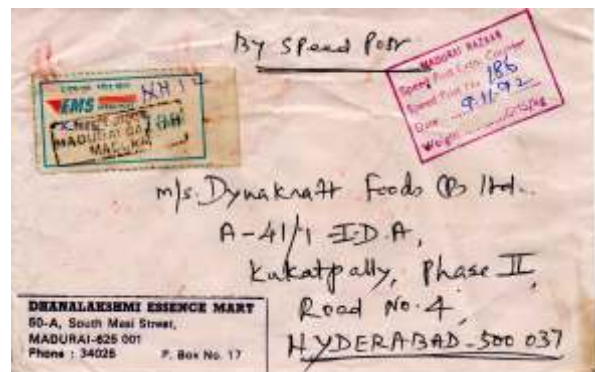 By Speed Post
MADURAI BAZAAR
Speed Post Extn. Counter
Speed Post No. 186
Date 9.11.92
Weight
EMS
MADURAI
M/s. Dynakraft Foods (P) ltd.
A-41/1 I.D.A,
Kukatpally, Phase II,
Road No. 4,
HYDERABAD-500 037
DHANALAKSHMI ESSENCE MART
50-A, South Masi Street,
MADURAI-625 001
Phone : 34025 P. Box No. 17